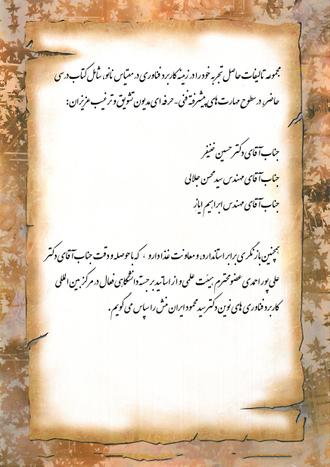 مجموعه تالیفات حاصل تجربه خود را در زمینه کاربرد فناوری در مقیاس نانو، شامل کتاب درسی
حاضر، در سطوح مهارت های پیشرفته فنی - حرفه ای مدیون تشویق و ترغیب عزیزان :
جناب آقای دکتر حسین غنیفر
جناب آقای مهندس سید محسن جلالی
جناب آقای مهندس ابراهیم ایاز
همچنین بازنگری برابر استاندارد، و معاونت غذا دارو ، که با حوصله و دقت جناب آقای دکتر
علی پور احمدی عضو محترم هیئت علمی و از اساتید برجسته دانشگاهی فعال در مرکز بین المللی
کاربرد فناوری های نوین دکتر سید محمود ایران منش را سپاس می گویم .